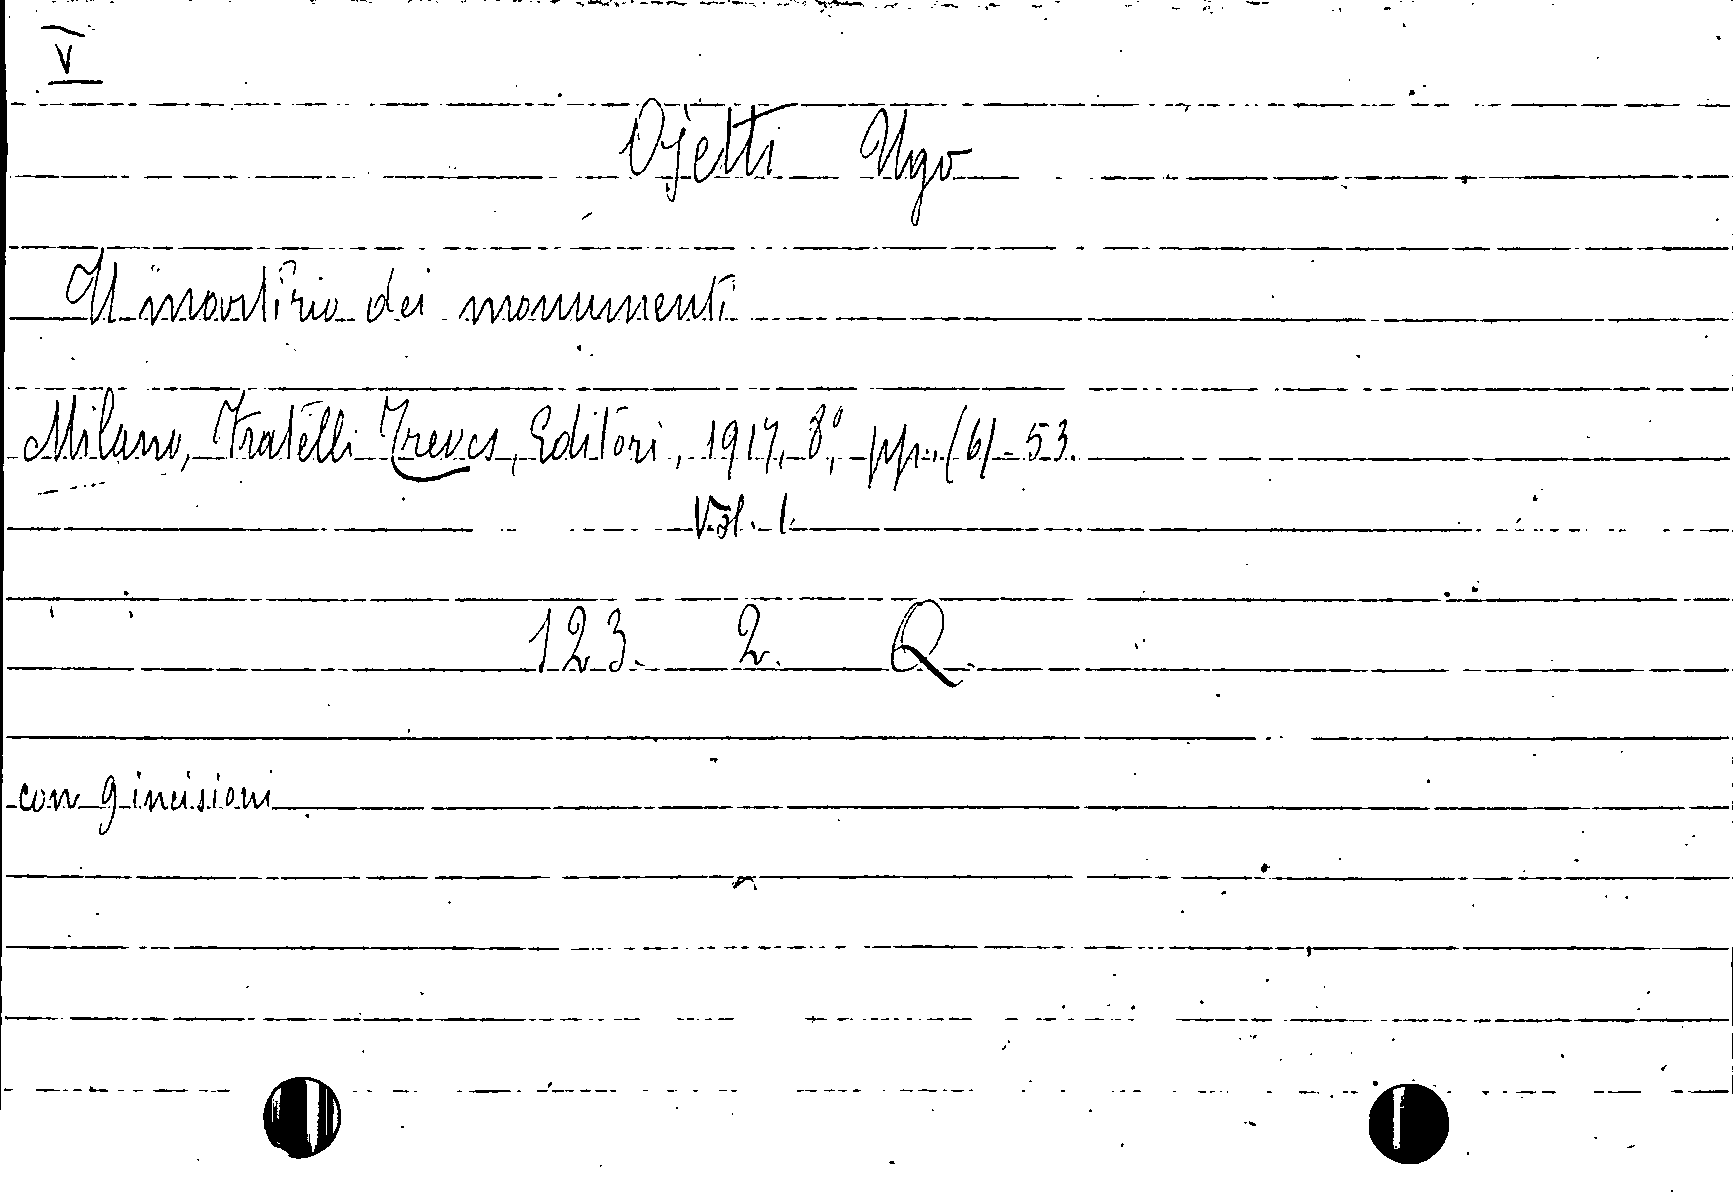 V
Ojetti Ugo
Il martirio dei monumenti
Milano, Fratelli Treves, Editori, 1917, 8°, pp. (6) - 53.
Vol. 1.
123. 2. Q.
con 9 incisioni